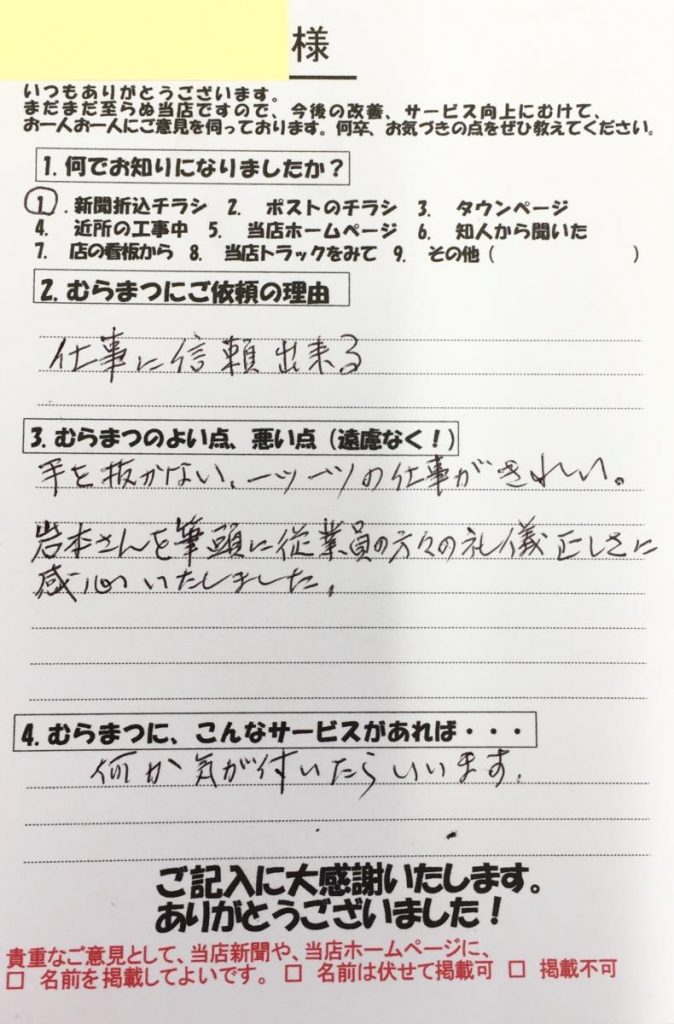 様
いつもありがとうございます。
まだまだ至らぬ当店ですので、今後の改善、サービス向上にむけて、
お一人お一人にご意見を伺っております。何卒、お気づきの点をぜひ教えてください。
1. 何でお知りになりましたか？
1. 新聞折込チラシ 2. ポストのチラシ 3. タウンページ
4. 近所の工事中 5. 当店ホームページ 6. 知人から聞いた
7. 店の看板から 8. 当店トラックをみて 9. その他（　　　　　）
2. むらまつにご依頼の理由
仕事に信頼出来る
3. むらまつのよい点、悪い点（遠慮なく！）
手を抜かない、一ツ一ツの仕事がきれい。
岩本さんを筆頭に従業員の方々の礼儀正しさに
感心いたしました。
4. むらまつに、こんなサービスがあれば・・・
何か気が付いたらいいます。
ご記入に大感謝いたします。
ありがとうございました！
貴重なご意見として、当店新聞や、当店ホームページに、
□ 名前を掲載してよいです。 □ 名前は伏せて掲載可 □ 掲載不可